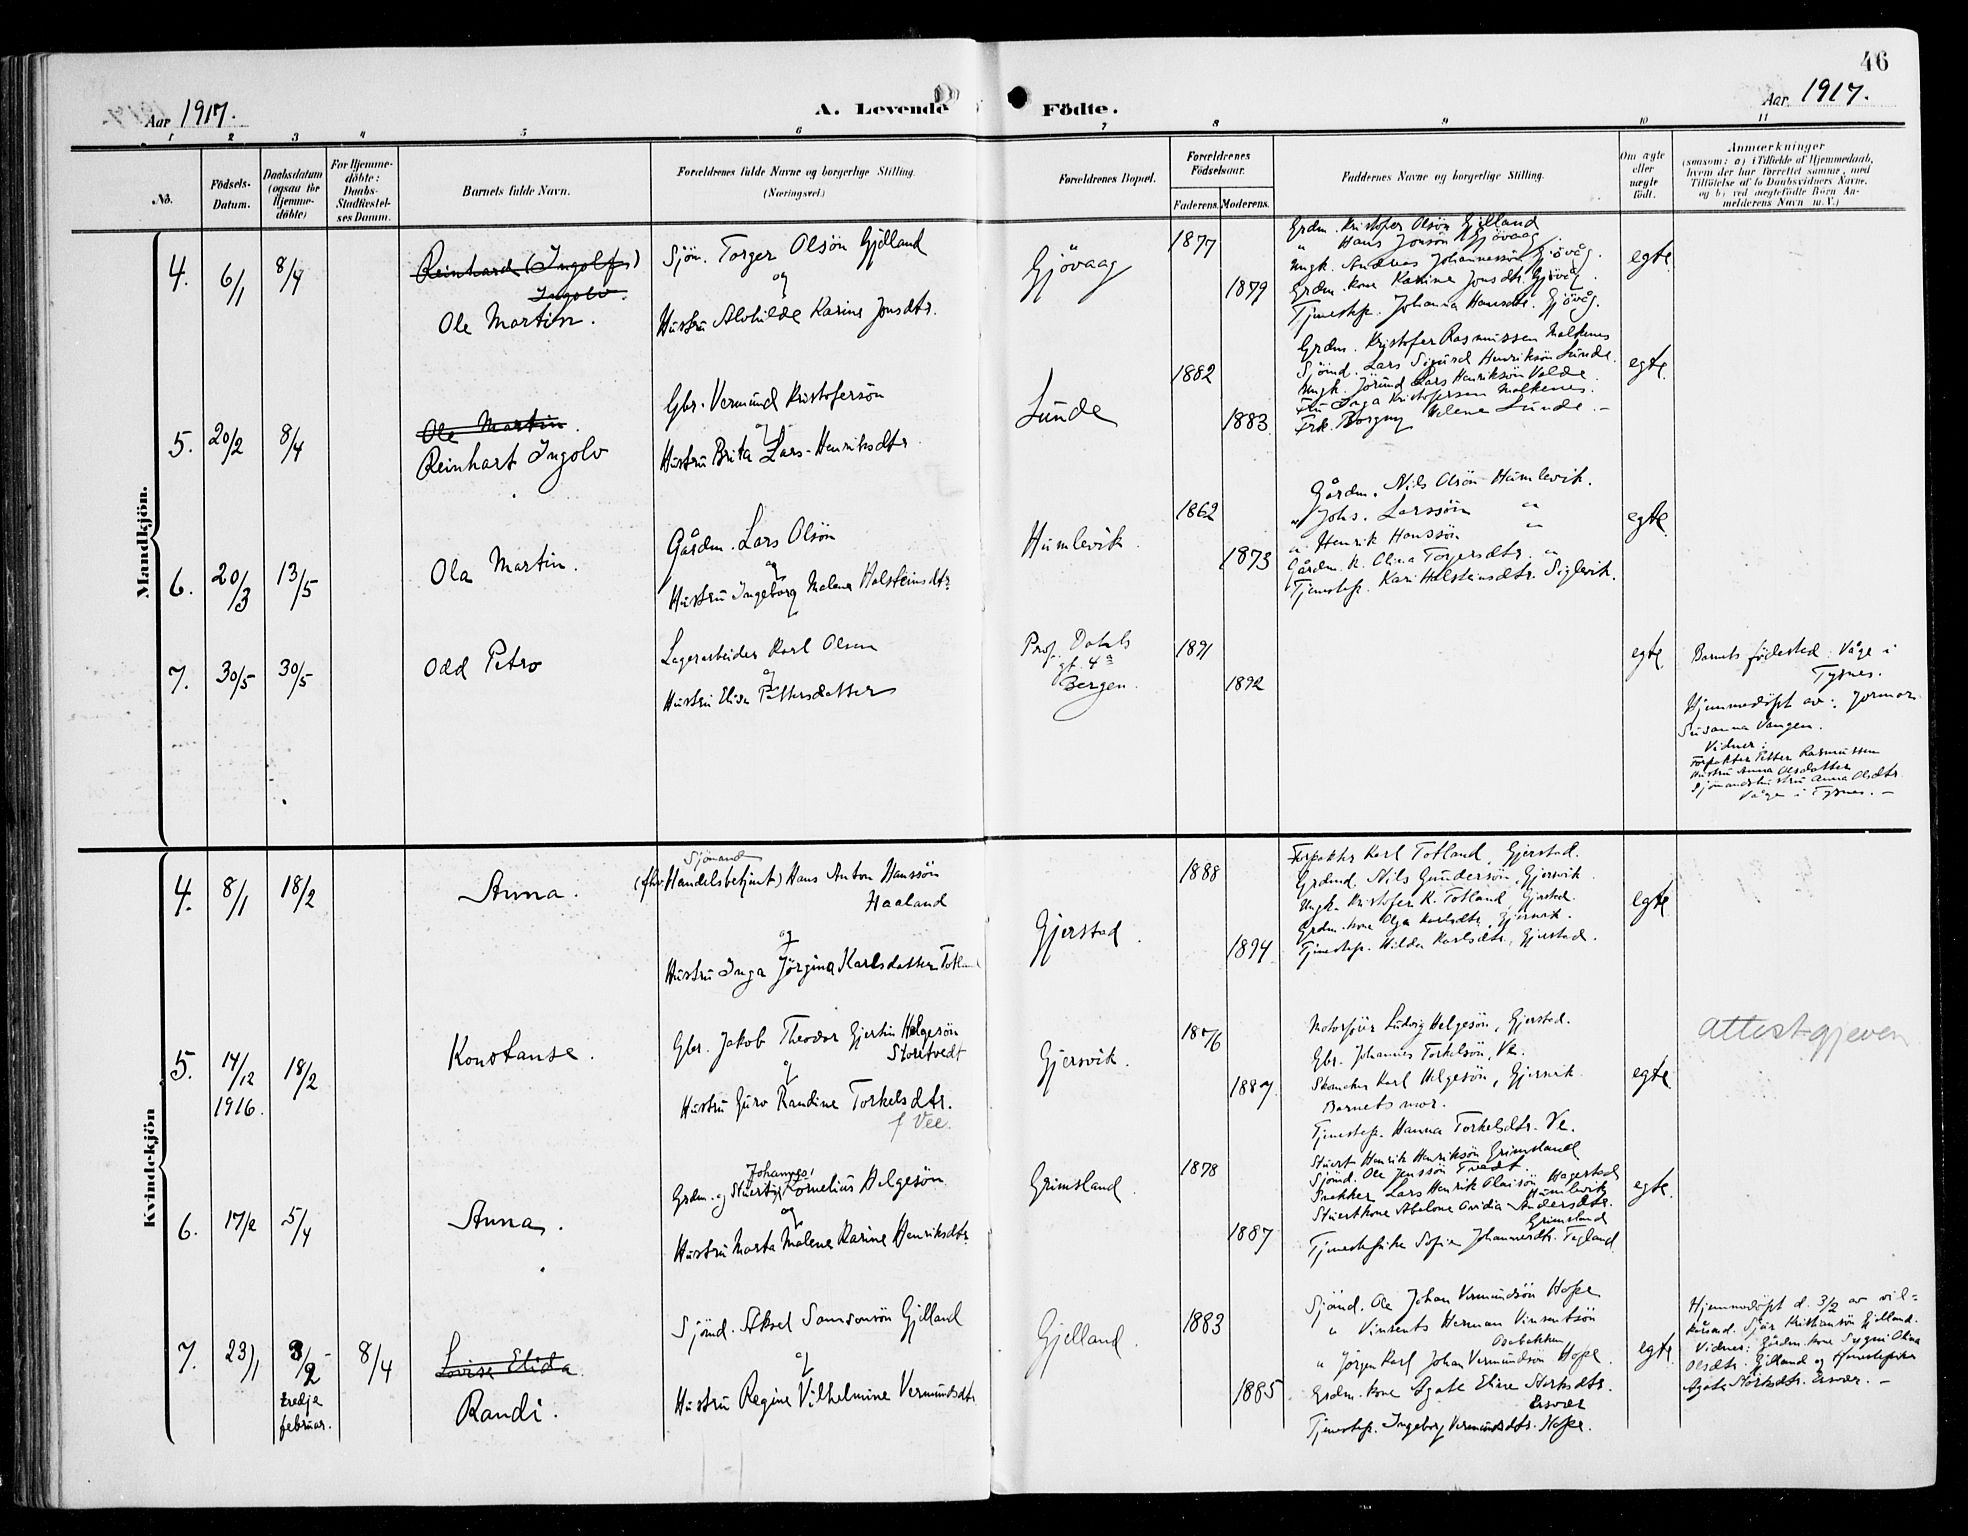 46
Aar 1917.
A. Levende Födte.
Aar 1917.
1 2 3 4 5 6 7 8 9 10 11
No.
Födsels-Datum.
Daabsdatum (ogsaa for Hjemmedöbte)
For Hjemmedöbte: Daabs-Stadfæstelses Datum.
Barnets fulde Navn.
Forældrenes fulde Navne og borgerlige Stilling. (Næringsvei.)
Forældrenes Bopæl.
Forældrenes Födselsaar.
Faderens. Moderens.
Faddernes Navne og borgerlige Stilling.
Om ægte eller uægte födt.
Anmærkninger
(saasom: a) i Tilfælde af Hjemmedaab, hvem der har forrettet samme, med Tilföielse af to Daabsvidners Navne, og b) ved uægtefödte Börn Anmelderens Navn m. V.)
Mandkjön.
4. 6/1 8/4
Reinhard (Ingolf)
Ingolv.
Ole Martin.
Sjöm. Torger Olsön Gjelland
og
Hustru Alvhilde Karine Jonsdtr.
Gjövaag
1877
1879
Grdm. Kristofer Olsön Gjelland
" Hans Jonsön Gjövaag.
Ungk. Andreas Johannessön Gjövåg.
Grdm. kone Karine Jonsdtr. Gjövåg.
Tjenestep. Johanna Hansdtr. Gjövåg.
egte
5. 20/2 8/4
Ole Martin.
Reinhart Ingolv
Gbr. Vermund Kristofersön
og
Hustru Brita Lars-Henriksdtr.
Lunde
1882
1883
Grdm. Kristofer Rasmussen Malkenes
Sjömd. Lars Sigurd Henriksön Lunde.
Ungk. Jörund Lars Henriksön Valde.
Fru Inga Kristofersen Malkenes.
Frk. Borgny Helene Lunde.
egte
6. 20/3 13/5
Ola Martin.
Gårdm. Lars Olsön
og
Hustru Ingeborg Malene Halsteinsdtr.
Humlevik.
1862
1873
Gårdm. Nils Olsön Humlevik.
" Johs. Larssön "
" Henrik Hanssön "
Gårdm. k. Olina Torgersdtr. "
Tjenestep. Kari Halsteinsdtr. Siglevik.
egte
7. 30/5 30/5
Odd Petro
Lagerarbeider Karl Olsen
og
Hustru Elise Pettersdatter
Prof. Dahls
gt. 4a
Bergen.
1891
1892
egte
Barnets födested: Våge i
Tysnes.
Hjemmedöpt av: Jormor
Susanna Vangen.
Vidner:
Forpakter Petter Rasmussen
Hustru Anna Olsdatter
Sjömandshustru Anna Olsdtr.
Våge i Tysnes. —
Kvindekjön
4. 8/1 18/2
Anna.
Sjömand
(fhv. Handelsbetjent) Hans Anton Hanssön
Haaland
og
Hustru Inga Jörgina Karlsdatter Totland
Gjerstad.
1888
1894
Forpakter Karl Totland, Gjerstad.
Grdmd. Nils Gundersön, Gjersvik.
Ungk. Kristofer K. Totland, Gjerstad.
Grdm. kone Olga Karlsdtr. Gjersvik.
Tjenestep. Hilda Karlsdtr, Gjerstad.
egte
5. 14/12 1916. 18/2
Konstanse.
Gbr. Jakob Theodor Gjertin Helgesön
Storetvedt
og
Hustru Guro Randine Torkelsdtr.
f Vee.
Gjersvik.
1876
1887
Motorförer Ludvig Helgesön, Gjerstad.
Gbr. Johannes Torkelsön, Ve.
Skomaker Karl Helgesön, Gjersvik.
Barnets mor.
Tjenestep. Hanna Torkelsdtr. Ve.
egte
attest gjeven
6. 17/2 5/4
Anna.
Johannes
Grdm. og Stuert Kornelius Helgesön
og
Hustru Marta Malene Karine Henriksdtr.
Grimsland.
1878
1887
Stuert Henrik Henriksön Grimsland
Sjömd. Ole Jenssön Tvedt
Snekker Lars Henrik Olaisön Hagerstad
Humlevik
Stuertkone Abelone Ovidia Andersdtr.
Grimsland
Tjenestepike Sofie Johannesdtr. Tegland
egte
7. 23/1 3/2 8/4
tredje
februar.
Lovise Elida
Randi.
Sjömd. Aksel Samsonsön Gjelland
og
Hustru Regine Vilhelmine Vermundsdtr.
Gjelland.
1883
1885
Sjömd. Ole Johan Vermundsön Hope
" Vinsents Herman Vinsentsön
" Jörgen Karl Johan Vermundsön Hope.
Grdm. kone Agate Eline Storksdtr.
Ersvær
Tjenestep. Ingeborg Vermundsdtr. Hope.
egte
Hjemmedöpt d. 3/2 av vil-
kårsmd. Sjur Kristiansön Gjelland.
Vidner: Gårdm. kone Sygni Olina
Olsdtr. Gjelland og tjenestepike
Agate Storksdtr. Ersvær. —